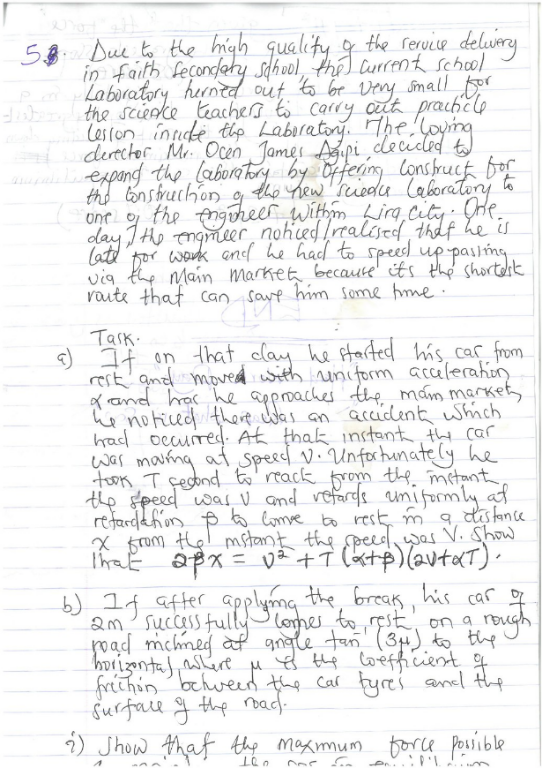 5. Due to the high quality of the service delivery
in faith secondary school the current school
Laboratory turned out to be very small for
the science teachers to carry out practicle
lesson inside the Laboratory. The loving
director Mr. Ocen James decided to
expand the laboratory by offering construct for
the construction of the new science laboratory to
one of the engineer within Lira City. One
day, the engineer noticed/realised that he is
late for work and he had to speed up passing
via the main market because its the shortest
route that can save him some time.
Task.
a) If on that day he started his car from
rest and moved with uniform acceleration
α and has he approaches the main market,
he noticed there was an accident which
had occurred. At that instant the car
was moving at speed V. Unfortunately he
took T second to react from the instant
the speed was V and retards uniformly at
retardation β to come to rest in a distance
x from the instant the speed was V. Show
that 2βx = V² + T(α+β)(2V+αT).
b) If after applying the break, his car of
2m successfully comes to rest on a rough
road inclined at angle tan⁻¹(3μ) to the
horizontal where μ is the coefficient of
friction between the car tyres and the
surface of the road.
i) Show that the maximum force possible
the car in equilibrium